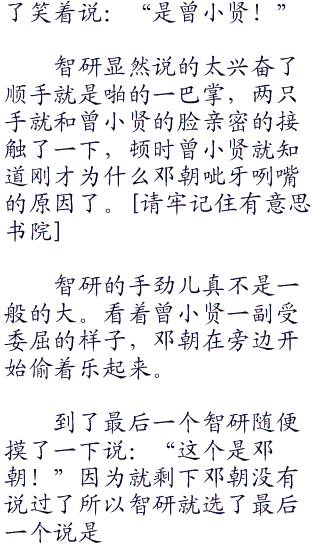 了笑着说：“是曾小贤！”
智研显然说的太兴奋了
顺手就是啪的一巴掌，两只
手就和曾小贤的脸亲密的接
触了一下，顿时曾小贤就知
道刚才为什么邓朝呲牙咧嘴
的原因了。[请牢记住有意思
书院]
智研的手劲儿真不是一
般的大。看着曾小贤一副受
委屈的样子，邓朝在旁边开
始偷着乐起来。
到了最后一个智研随便
摸了一下说：“这个是邓
朝！”因为就剩下邓朝没有
说过了所以智研就选了最后
一个说是